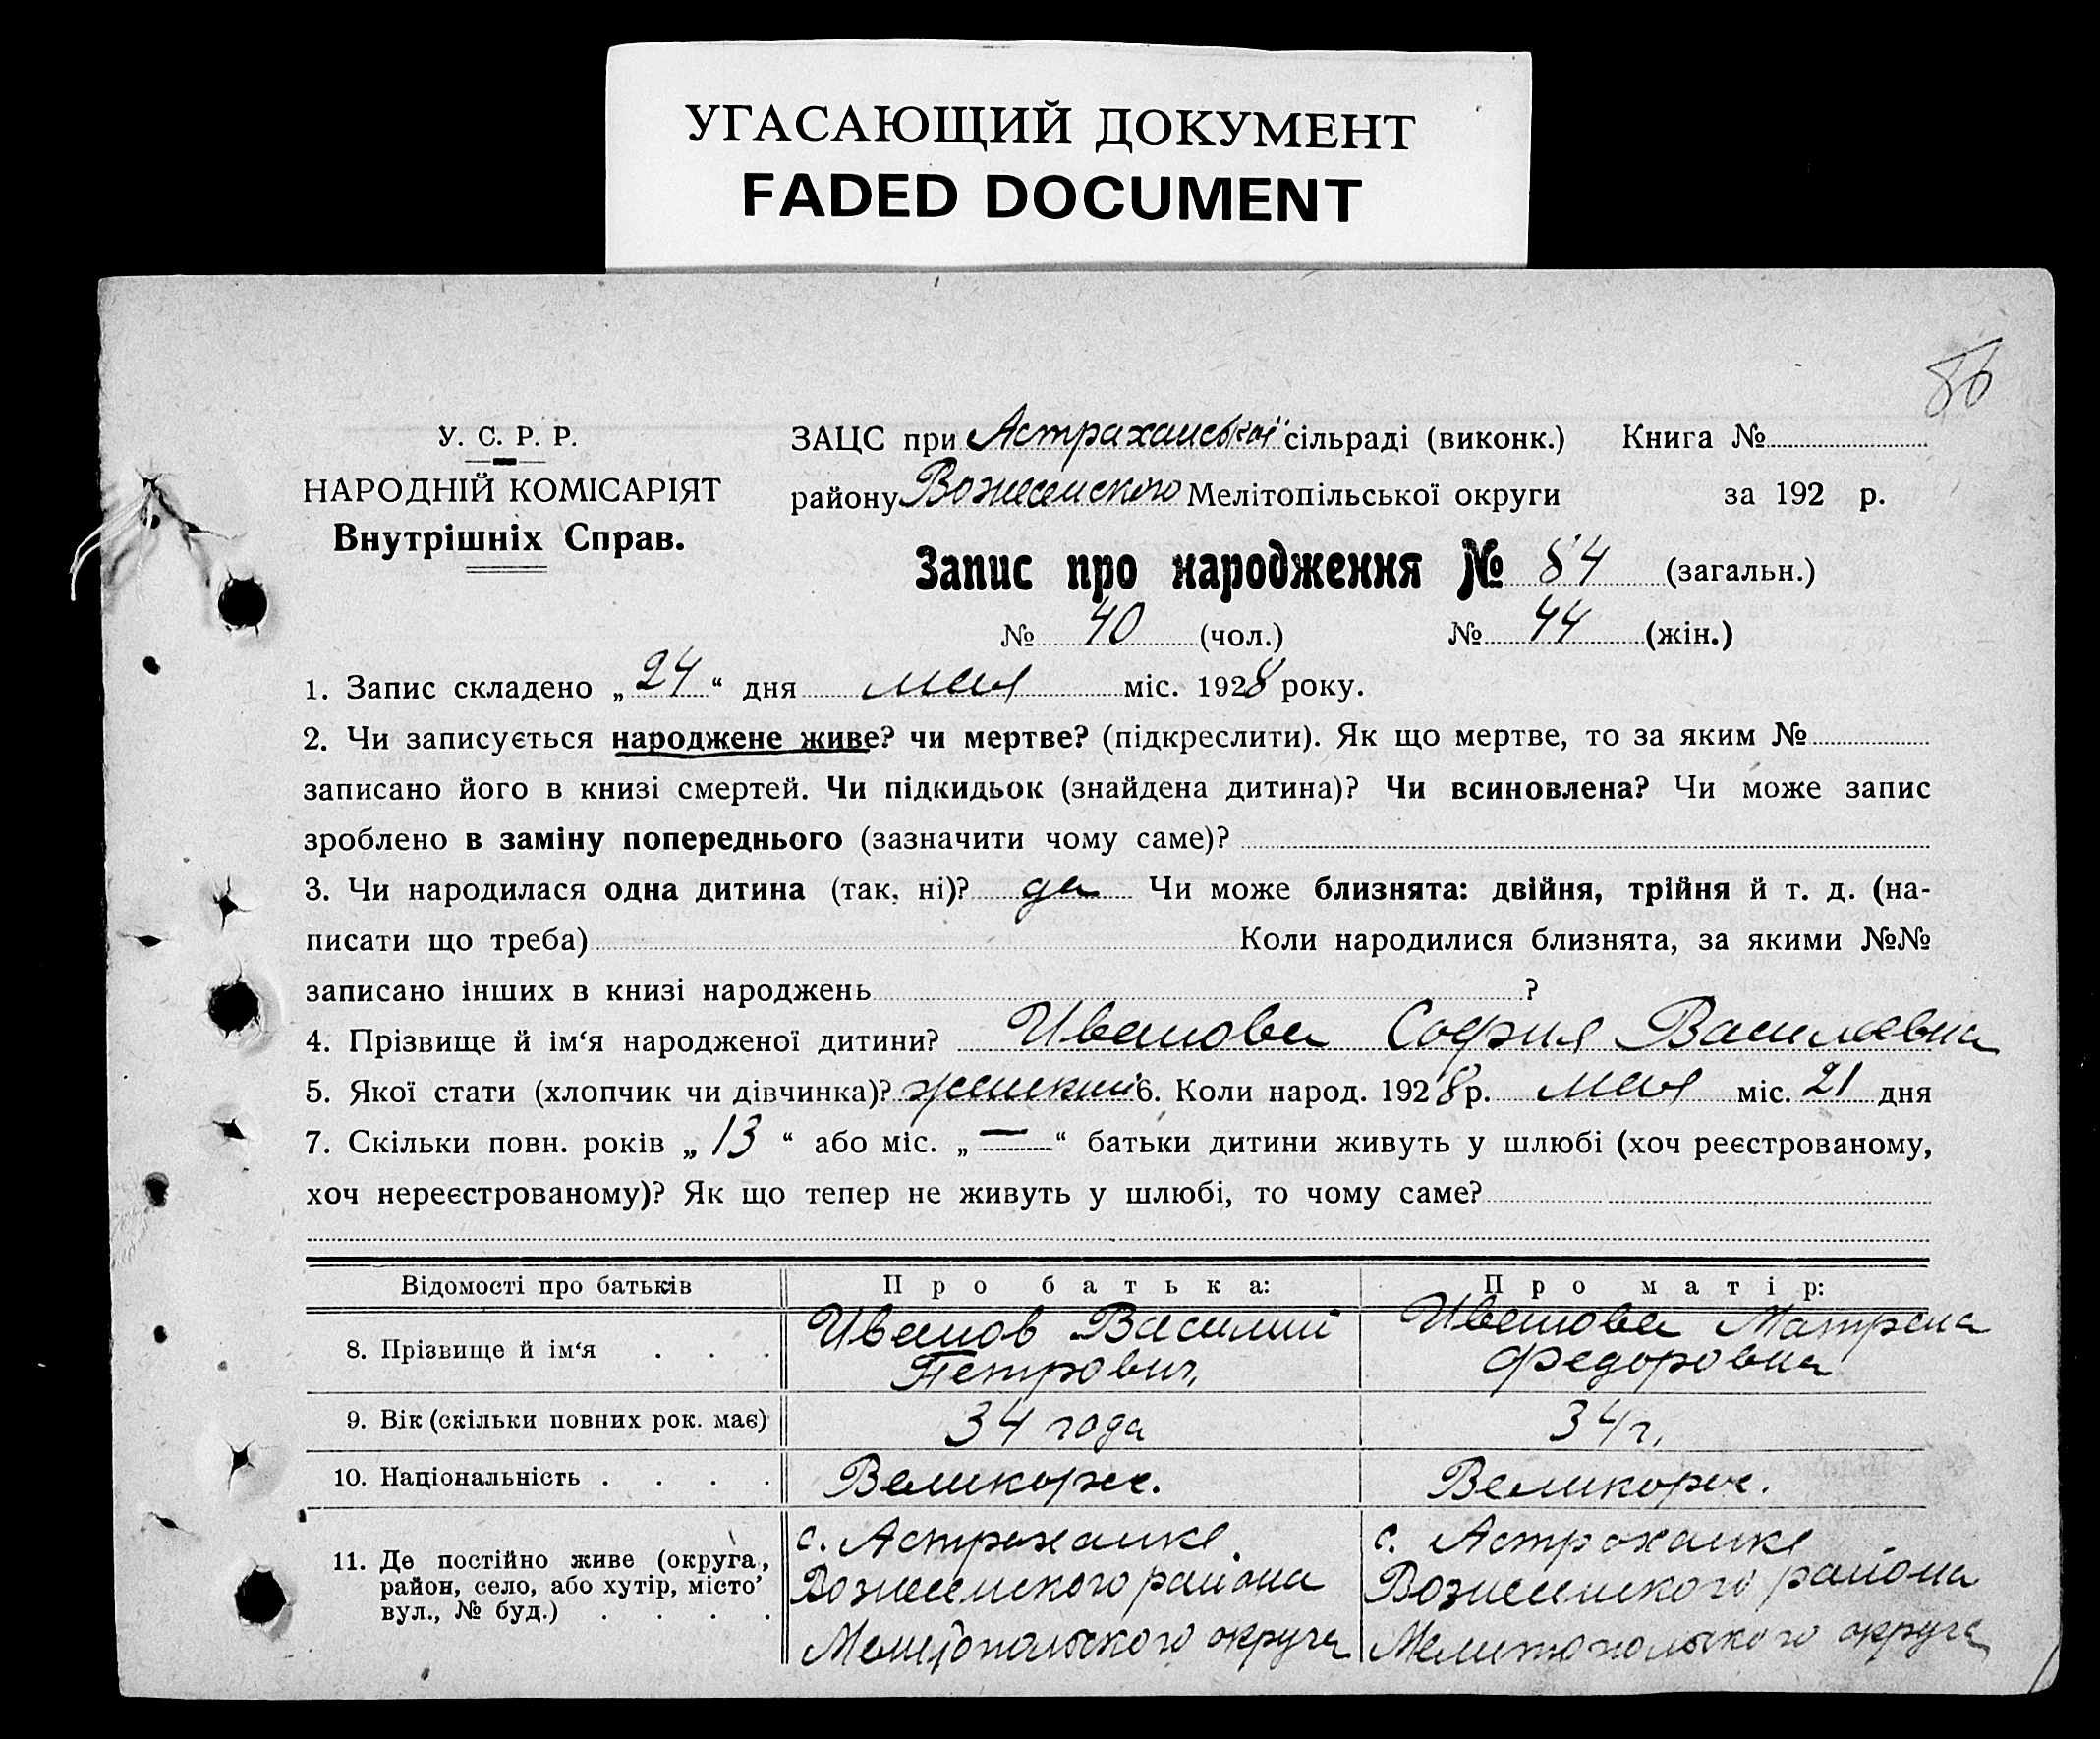 УГАСАЮЩИЙ ДОКУМЕНТ
FADED DOCUMENT
86
У. С. Р. Р.
НАРОДНІЙ КОМІСАРІЯТ
Внутрішніх Справ.
ЗАЦС при Астраханської сільраді (виконк.) Книга №
району Вознесенского Мелітопільської округи за 192 р.
Запис про народження № 84 (загальн.)
№ 40 (чол.) № 44 (жін.)
1. Запис складено „24“ дня мая міс. 1928 року.
2. Чи записується народжене живе? чи мертве? (підкреслити). Як що мертве, то за яким №
записано його в книзі смертей. Чи підкидьок (знайдена дитина)? Чи всиновлена? Чи може запис
зроблено в заміну попереднього (зазначити чому саме)?
3. Чи народилася одна дитина (так, ні)? да Чи може близнята: двійня, трійня й т. д. (на-
писати що треба) Коли народилися близнята, за якими №№
записано інших в книзі народжень ?
4. Прізвище й ім‘я народженої дитини? Иванова София Василевна
5. Якої стати (хлопчик чи дівчинка)? женский 6. Коли народ. 1928 р. мая міс. 21 дня
7. Скільки повн. років „13“ або міс. „—“ батьки дитини живуть у шлюбі (хоч реєстрованому,
хоч нереєстрованому)? Як що тепер не живуть у шлюбі, то чому саме?
Відомості про батьків Про батька: Про матір:
8. Прізвище й ім‘я . . . Иванов Василий Петрович, Иванова Матрена Федоровна
9. Вік (скільки повних рок. має) 34 года 34 г.
10. Національність . . . . Великорос. Великорос.
11. Де постійно живе (округа, район, село, або хутір, місто’ вул., № буд.) . . . .
с. Астраханке Вознесенского района Мелитопольского округа
с. Астраханке Вознесенского района Мелитопольского округа